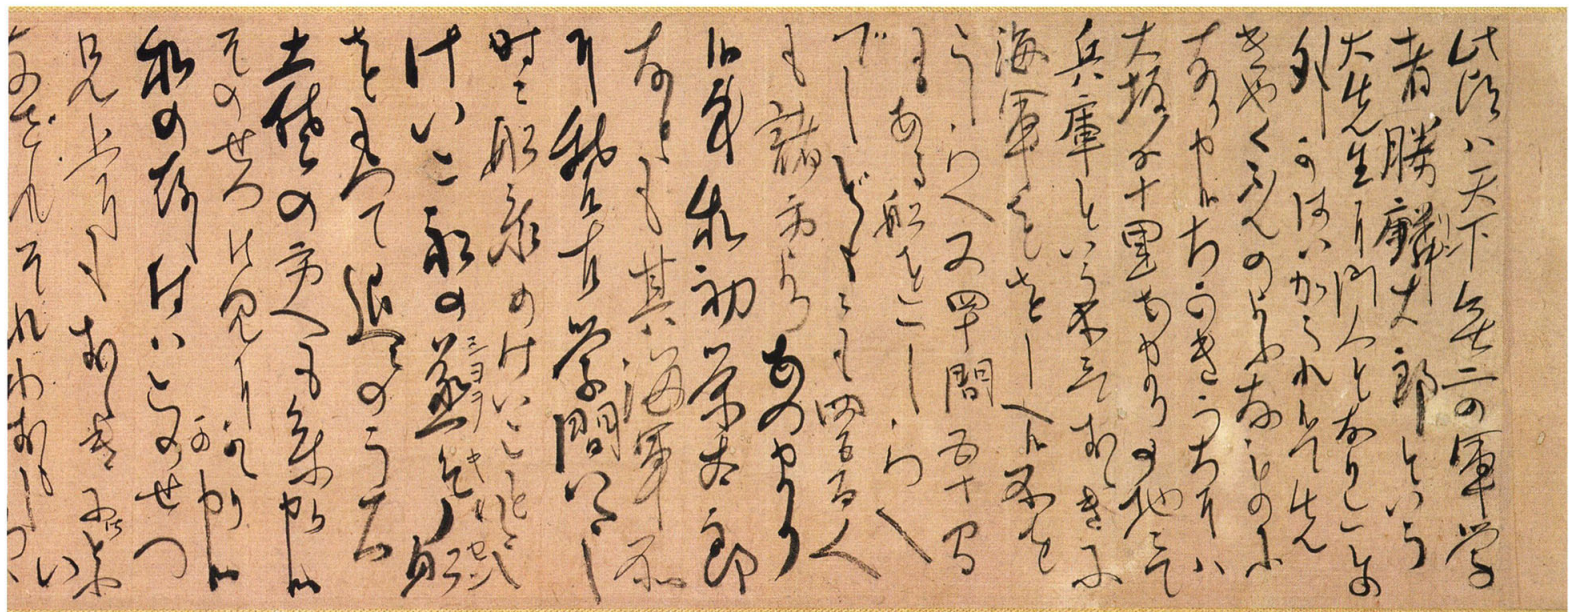 此頃ハ天下無二の軍学
者勝麟太郎という
大先生に門人となりことの
外かはいがられ候て先
きやくふんのよふなものに
なり申候ちかきうちにハ
大坂より十里あまりの地ニて
兵庫という所ニておゝきに
海軍ををしへ候所を
こしらへ又四十間五十間
もある船をこしらへ
でしどもニも四五百人
も諸方よりあつまり
候事私初栄太郎
なども其海軍所
に稽古学問いたし
時々船乗のけいこもいたし
けいこ船の蒸気船
をもつて近々のうち
土佐の方へも参り申候
そのせつ御見にかゝり可申候
私の存じ付ハこのせつ
兄上にもおゝきに御どふい
なされそれわおもしろい